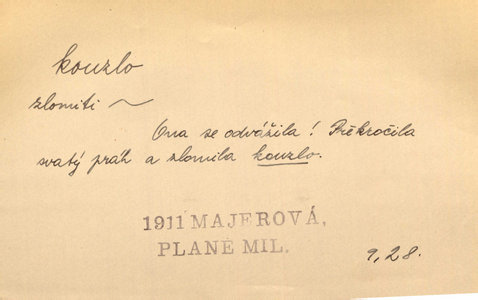 kouzlo
zlomiti ~
Ona se odvážila! Překročila
svatý práh a zlomila kouzlo.
1911 MAJEROVÁ,
PLANÉ MIL.
9, 28.